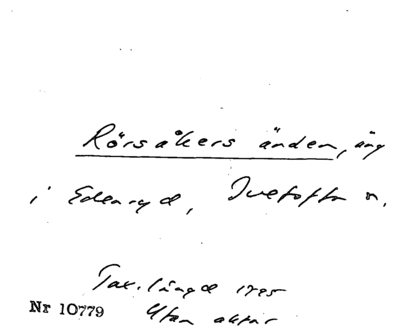 Rörsåkers änden, äng
i Edenryd, Ivetofta sn.
Tax. längd 1795
Nr 10779 Utan aktnr